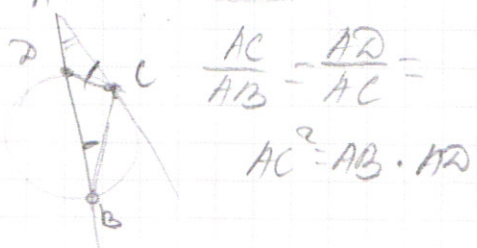 A
D
C
B
AC/AB = AD/AC =
AC² = AB · AD